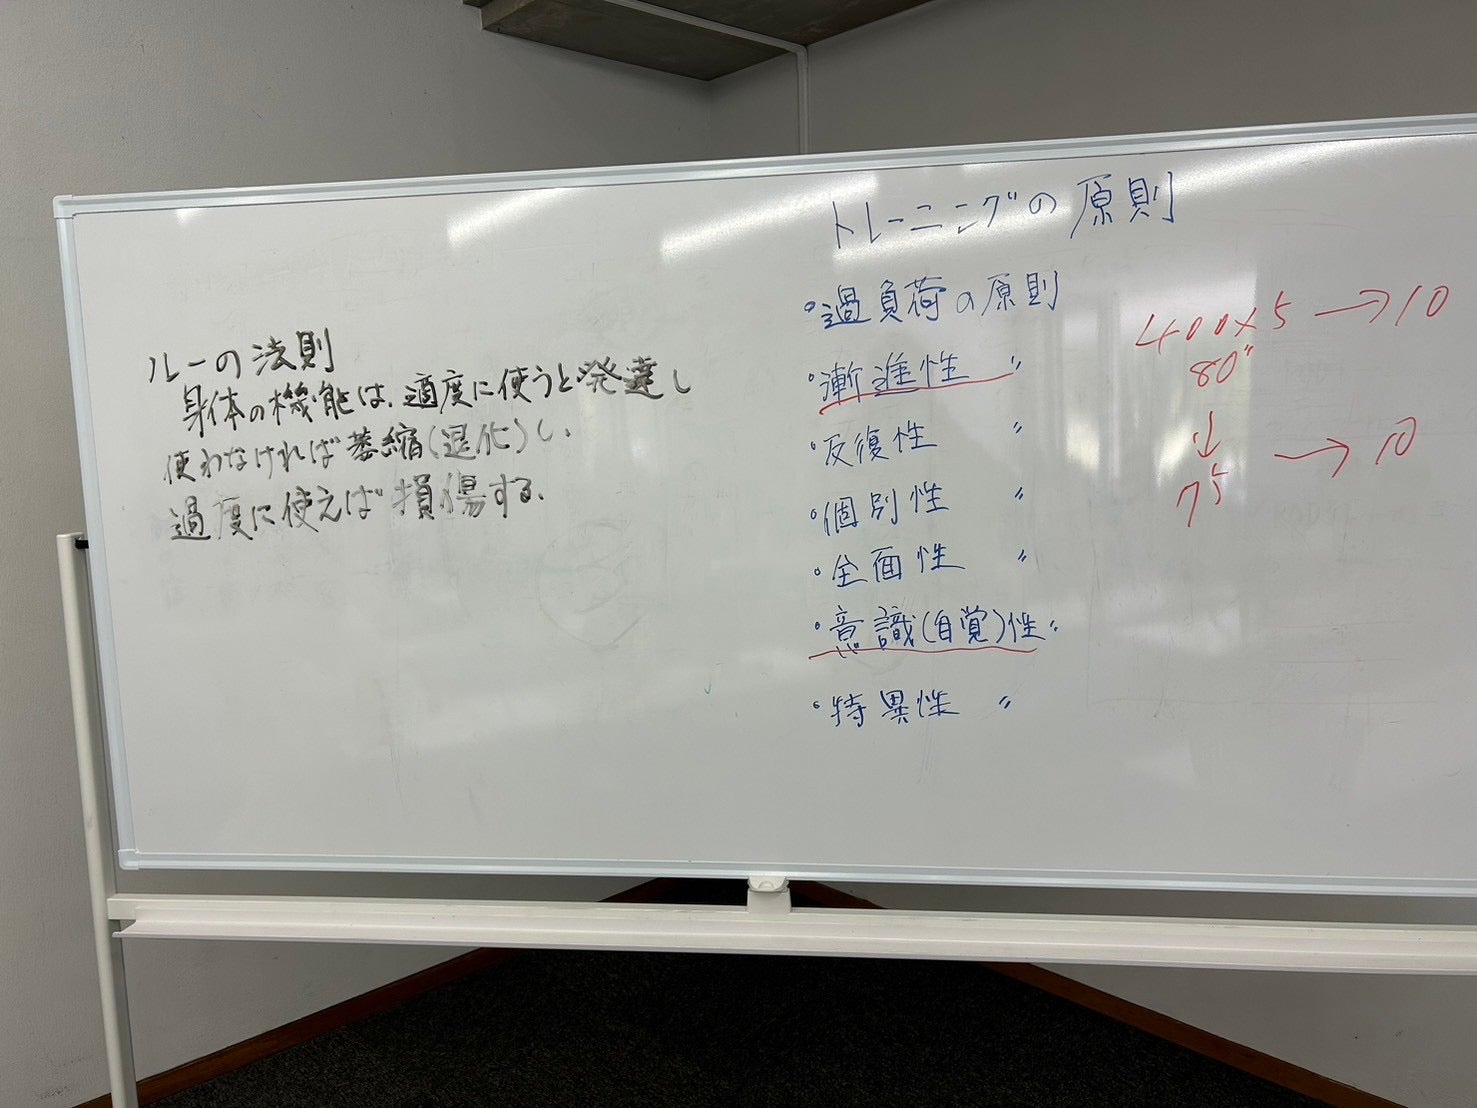 ルーの法則
身体の機能は、適度に使うと発達し
使わなければ萎縮(退化)し、
過度に使えば損傷する。
トレーニングの原則
・過負荷の原則
・漸進性 〃
・反復性 〃
・個別性 〃
・全面性 〃
・意識(自覚)性〃
・特異性 〃
400×5 → 10
80"
↓
75 → 10